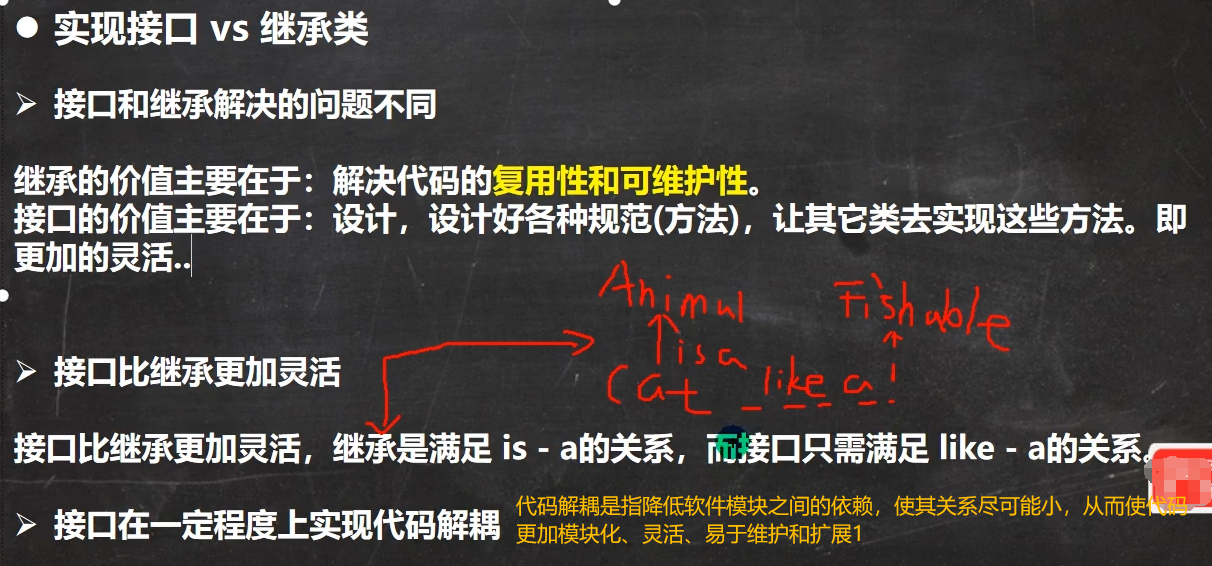 ● 实现接口 vs 继承类
➢ 接口和继承解决的问题不同
继承的价值主要在于：解决代码的复用性和可维护性。
接口的价值主要在于：设计，设计好各种规范(方法)，让其它类去实现这些方法。即
更加的灵活..
Animal
Fishable
is a
Cat
like a
➢ 接口比继承更加灵活
接口比继承更加灵活，继承是满足 is - a的关系，而接口只需满足 like - a的关系。
➢ 接口在一定程度上实现代码解耦
代码解耦是指降低软件模块之间的依赖，使其关系尽可能小，从而使代码
更加模块化、灵活、易于维护和扩展1